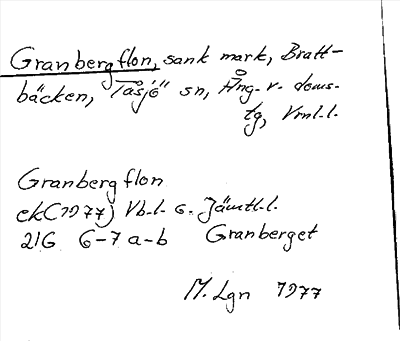 Granbergflon, sank mark, Bratt-
bäcken, Tåsjö sn, Ång. v. doms-
tg, Vml.l.
Granbergflon
ek(1977) Vb.l. o. Jämtl.l.
21G 6-7 a-b Granberget
M. Lgn 1977